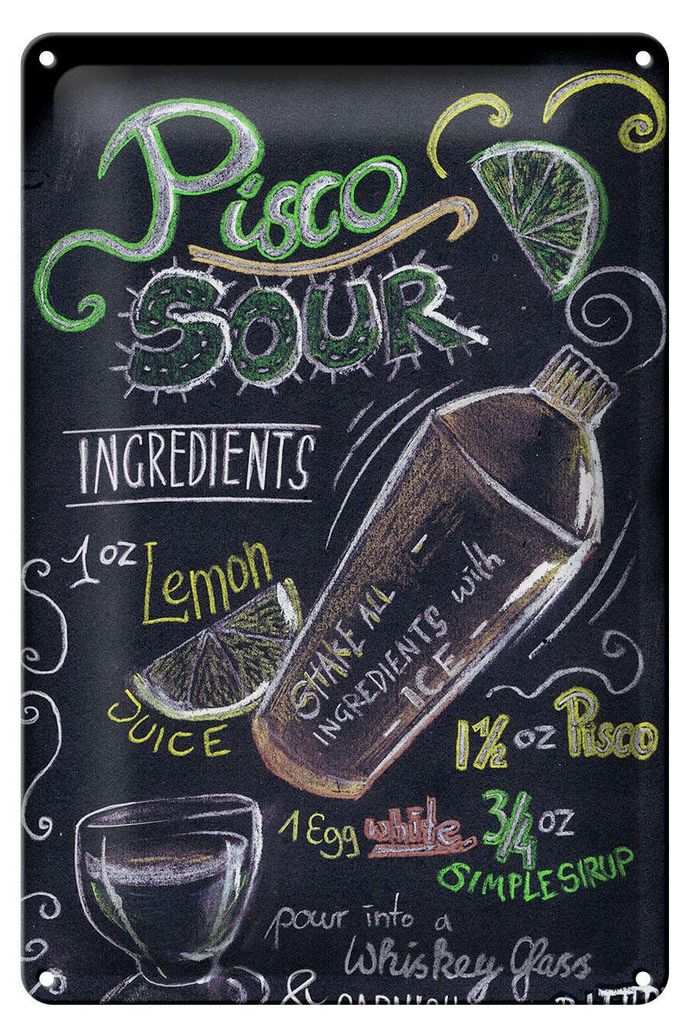 Pisco
SOUR
INGREDIENTS
1 oz Lemon
JUICE
SHAKE ALL
INGREDIENTS with
- ICE -
1½ oz Pisco
1 Egg white
3/4 oz
SIMPLE SIRUP
pour into a
Whiskey Glass
&